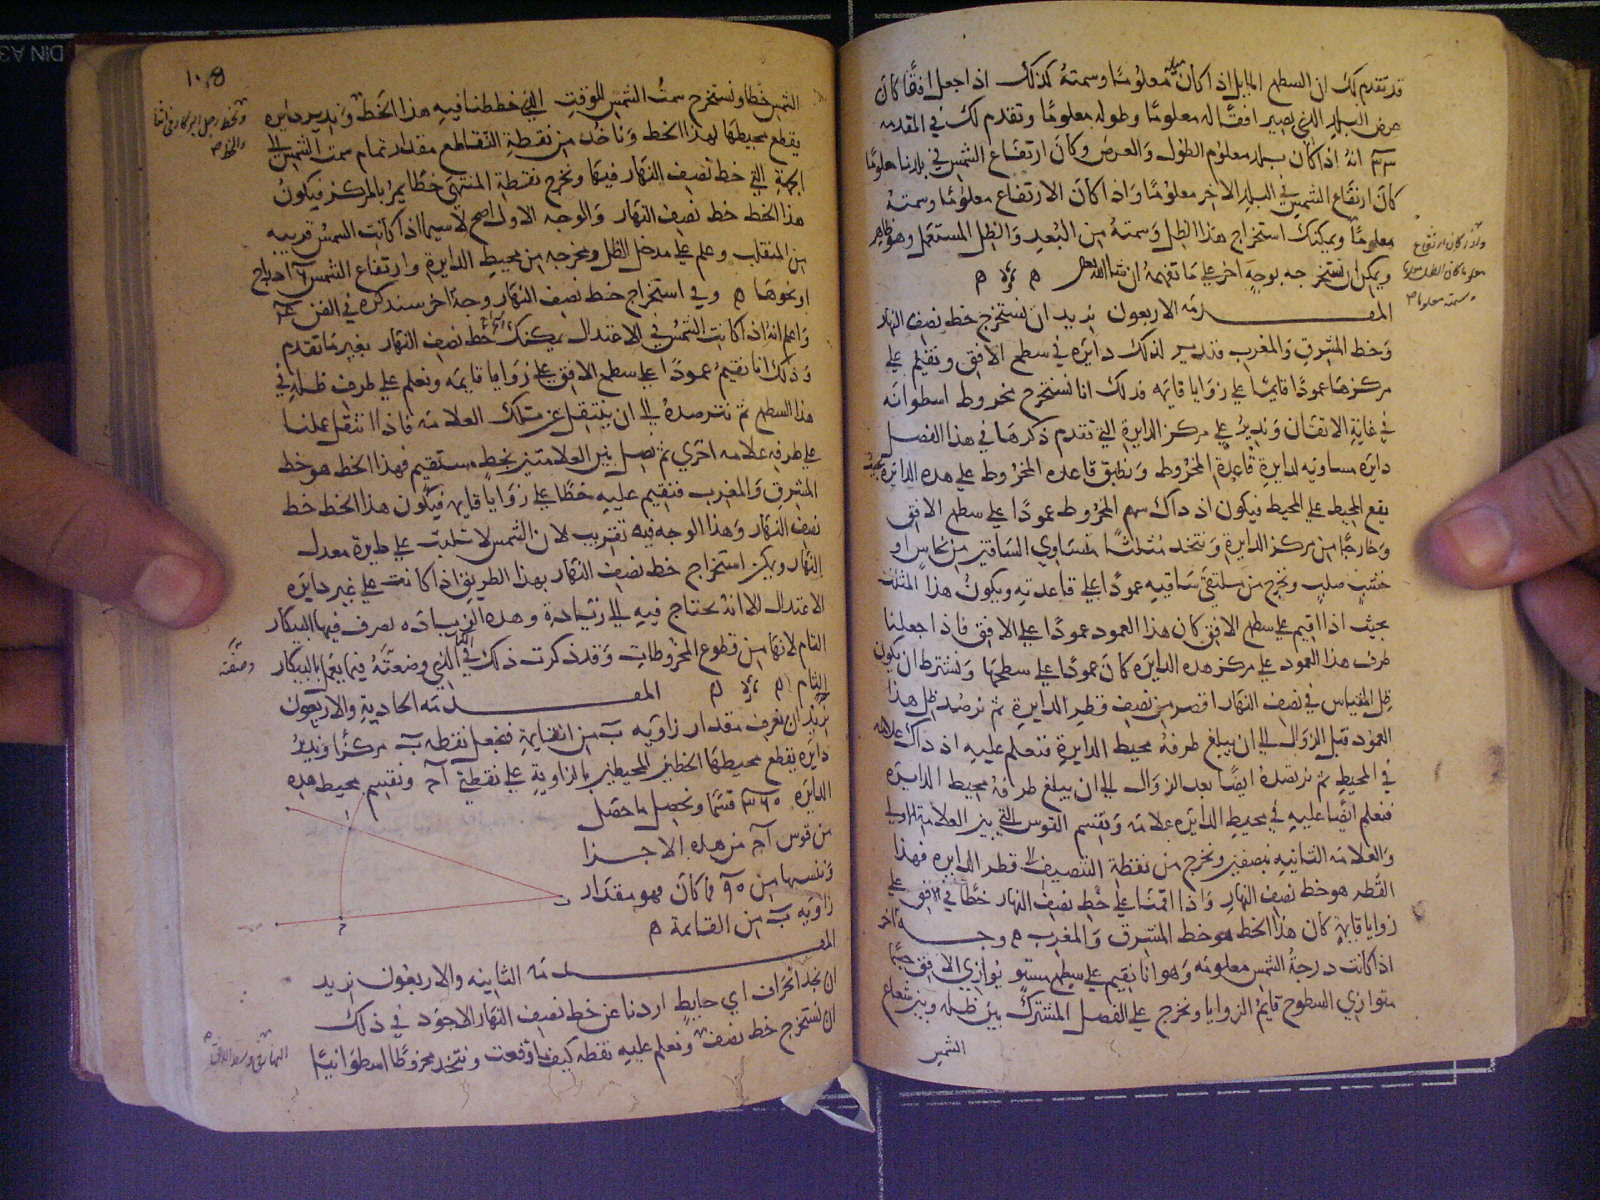 قد تقدم لك ان السطح المايل اذا كان ميله معلوما وسمته كذلك اذا جعل افقا كان
عرض البلد الذي يصير افقا له معلوما وطوله معلوما وتقدم لك في المقدمه
انه اذا كان بلد معلوم الطول والعرض وكان ارتفاع الشمس في بلدنا معلوما
كان ارتفاع الشمس في البلد الاخر معلوما واذا كان الارتفاع معلوما وسمته
معلوما ويمكنك استخراج هذا الظل وسمته من البعد والظل المستعمل وهو ظاهر
ويمكن ان نستخرجه بوجه اخر على ما تفهمه ان شا الله تعالى
المقدمه الاربعون نريد ان نستخرج خط نصف النهار
وخط المشرق والمغرب فندير لذلك دايره في سطح الافق ونقيم على
مركزها عمودا قايما على زوايا قايمه وذلك انا نستخرج مخروط اسطوانه
في غاية الاتقان وندير على مركز الدايرة التي تقدم ذكرها في هذا الفصل
دايره مساويه لدايرة قاعدة المخروط ونطبق قاعده المخروط على هذه الدايره بحيث
يقع المحيط على المحيط فيكون اذ ذاك سهم المخروط عمودا على سطح الافق
وخارجا من مركز الدايرة ونتخذ مثلثا متساوي الساقين من نحاس او
خشب صلب ونخرج من ملتقى ساقيه عمودا على قاعدته ويكون هذا المثلث
بحيث اذا اقيم على سطح الافق كان هذا العمود عمودا على الافق فاذا جعلنا
طرف هذا العمود على مركز هذه الدايره كان عمودا على سطحها ونشترط ان يكون
ظل المقياس في نصف النهار اقصر من نصف قطر الدايرة ثم نرصد ظل هذا
العمود قبل الزوال الى ان يبلغ طرفه محيط الدايرة فنعلم عليه اذ ذاك علامه
في المحيط ثم نرصده ايضا بعد الزوال الى ان يبلغ طرفه محيط الدايره
فنعلم ايضا عليه في محيط الدايره علامه ونقسم القوس التي بين العلامة الاولى
والعلامه الثانيه نصفين ونخرج من نقطة التنصيف الى قطر الدايره فهذا
القطر هو خط نصف النهار واذا اقمنا على خط نصف النهار خطا في الافق على
زوايا قايمه كان هذا الخط هو خط المشرق والمغرب وجه اخر
اذا كانت درجة الشمس معلومه وهو انا نقيم على سطح مستو يوازي الافق جسما
متوازي السطوح قايم الزوايا ونخرج على الفصل المشترك بين ظله وبين شعاع
الشمس
واذا كان ارتفاع
معلوما كان الظل معلوما
وسمته معلوما صح
١٠٨
الشمس خطا ونستخرج سمت الشمس للوقت الذي خططنا فيه هذا الخط وندير دايره
يقطع محيطها لهذا الخط وناخذ من نقطة التقاطع مقدار تمام سمت الشمس الى
الجهة التي خط نصف النهار فيها ونخرج نقطة المنتهى خطا يمر بالمركز فيكون
هذا الخط خط نصف النهار والوجه الاول اصح لا سيما اذا كانت الشمس قريبه
من المنقلب وعلم على مدخل الظل ومخرجه من محيط الدايرة وارتفاع الشمس
او نحوها وفي استخراج خط نصف النهار وجها اخر سنذكره في الفن
واعلم انه اذا كانت الشمس في الاعتدال يمكنك خط نصف النهار بغير ما تقدم
وذلك انا نقيم عمودا على سطح الافق على زوايا قايمه ونعلم على طرف ظله في
هذا السطح ثم نرصده الى ان ينتقل عن تلك العلامه فاذا انتقل علمنا
على طرفه علامه اخري ثم نصل بين العلامتين بخط مستقيم فهذا الخط هو خط
المشرق والمغرب فنقيم عليه خطا على زوايا قايمه فيكون هذا الخط خط
نصف النهار وهذا الوجه فيه تقريب لان الشمس لا تثبت على دايرة معدل
النهار ويمكن استخراج خط نصف النهار بهذا الطريق اذا كانت على غير دايره
الاعتدال الا انه يحتاج فيه الى زيادة وهذه الزياده تعرف فيها البيكار
التام لانها من قطوع المخروطات وقد ذكرت ذلك في الذي وضعته فيما يعمل بالبيكار
التام المقدمه الحادية والاربعون
نريد ان نعرف مقدار زاويه ب من القايمة فنجعل نقطه ب مركزا وندير
دايره يقطع محيطها الخطين المحيطين بالزاوية على نقطتي ا ج ونقسم محيط هذه
الدايره ٣٦٠ قسما ونحصل ما حصل
من قوس ا ج من هذه الاجزا
وننسبها من ٩٠ فما كان فهو مقدار
زاويه ب من القايمة
المقدمه الثانيه والاربعون نريد
ان نجد انحراف اي حايط اردنا عن خط نصف النهار الاجود في ذلك
ان نستخرج خط نصف ونعلم عليه نقطه كيف وقعت ونتخذ مخروطا اسطوانيا
وصفته